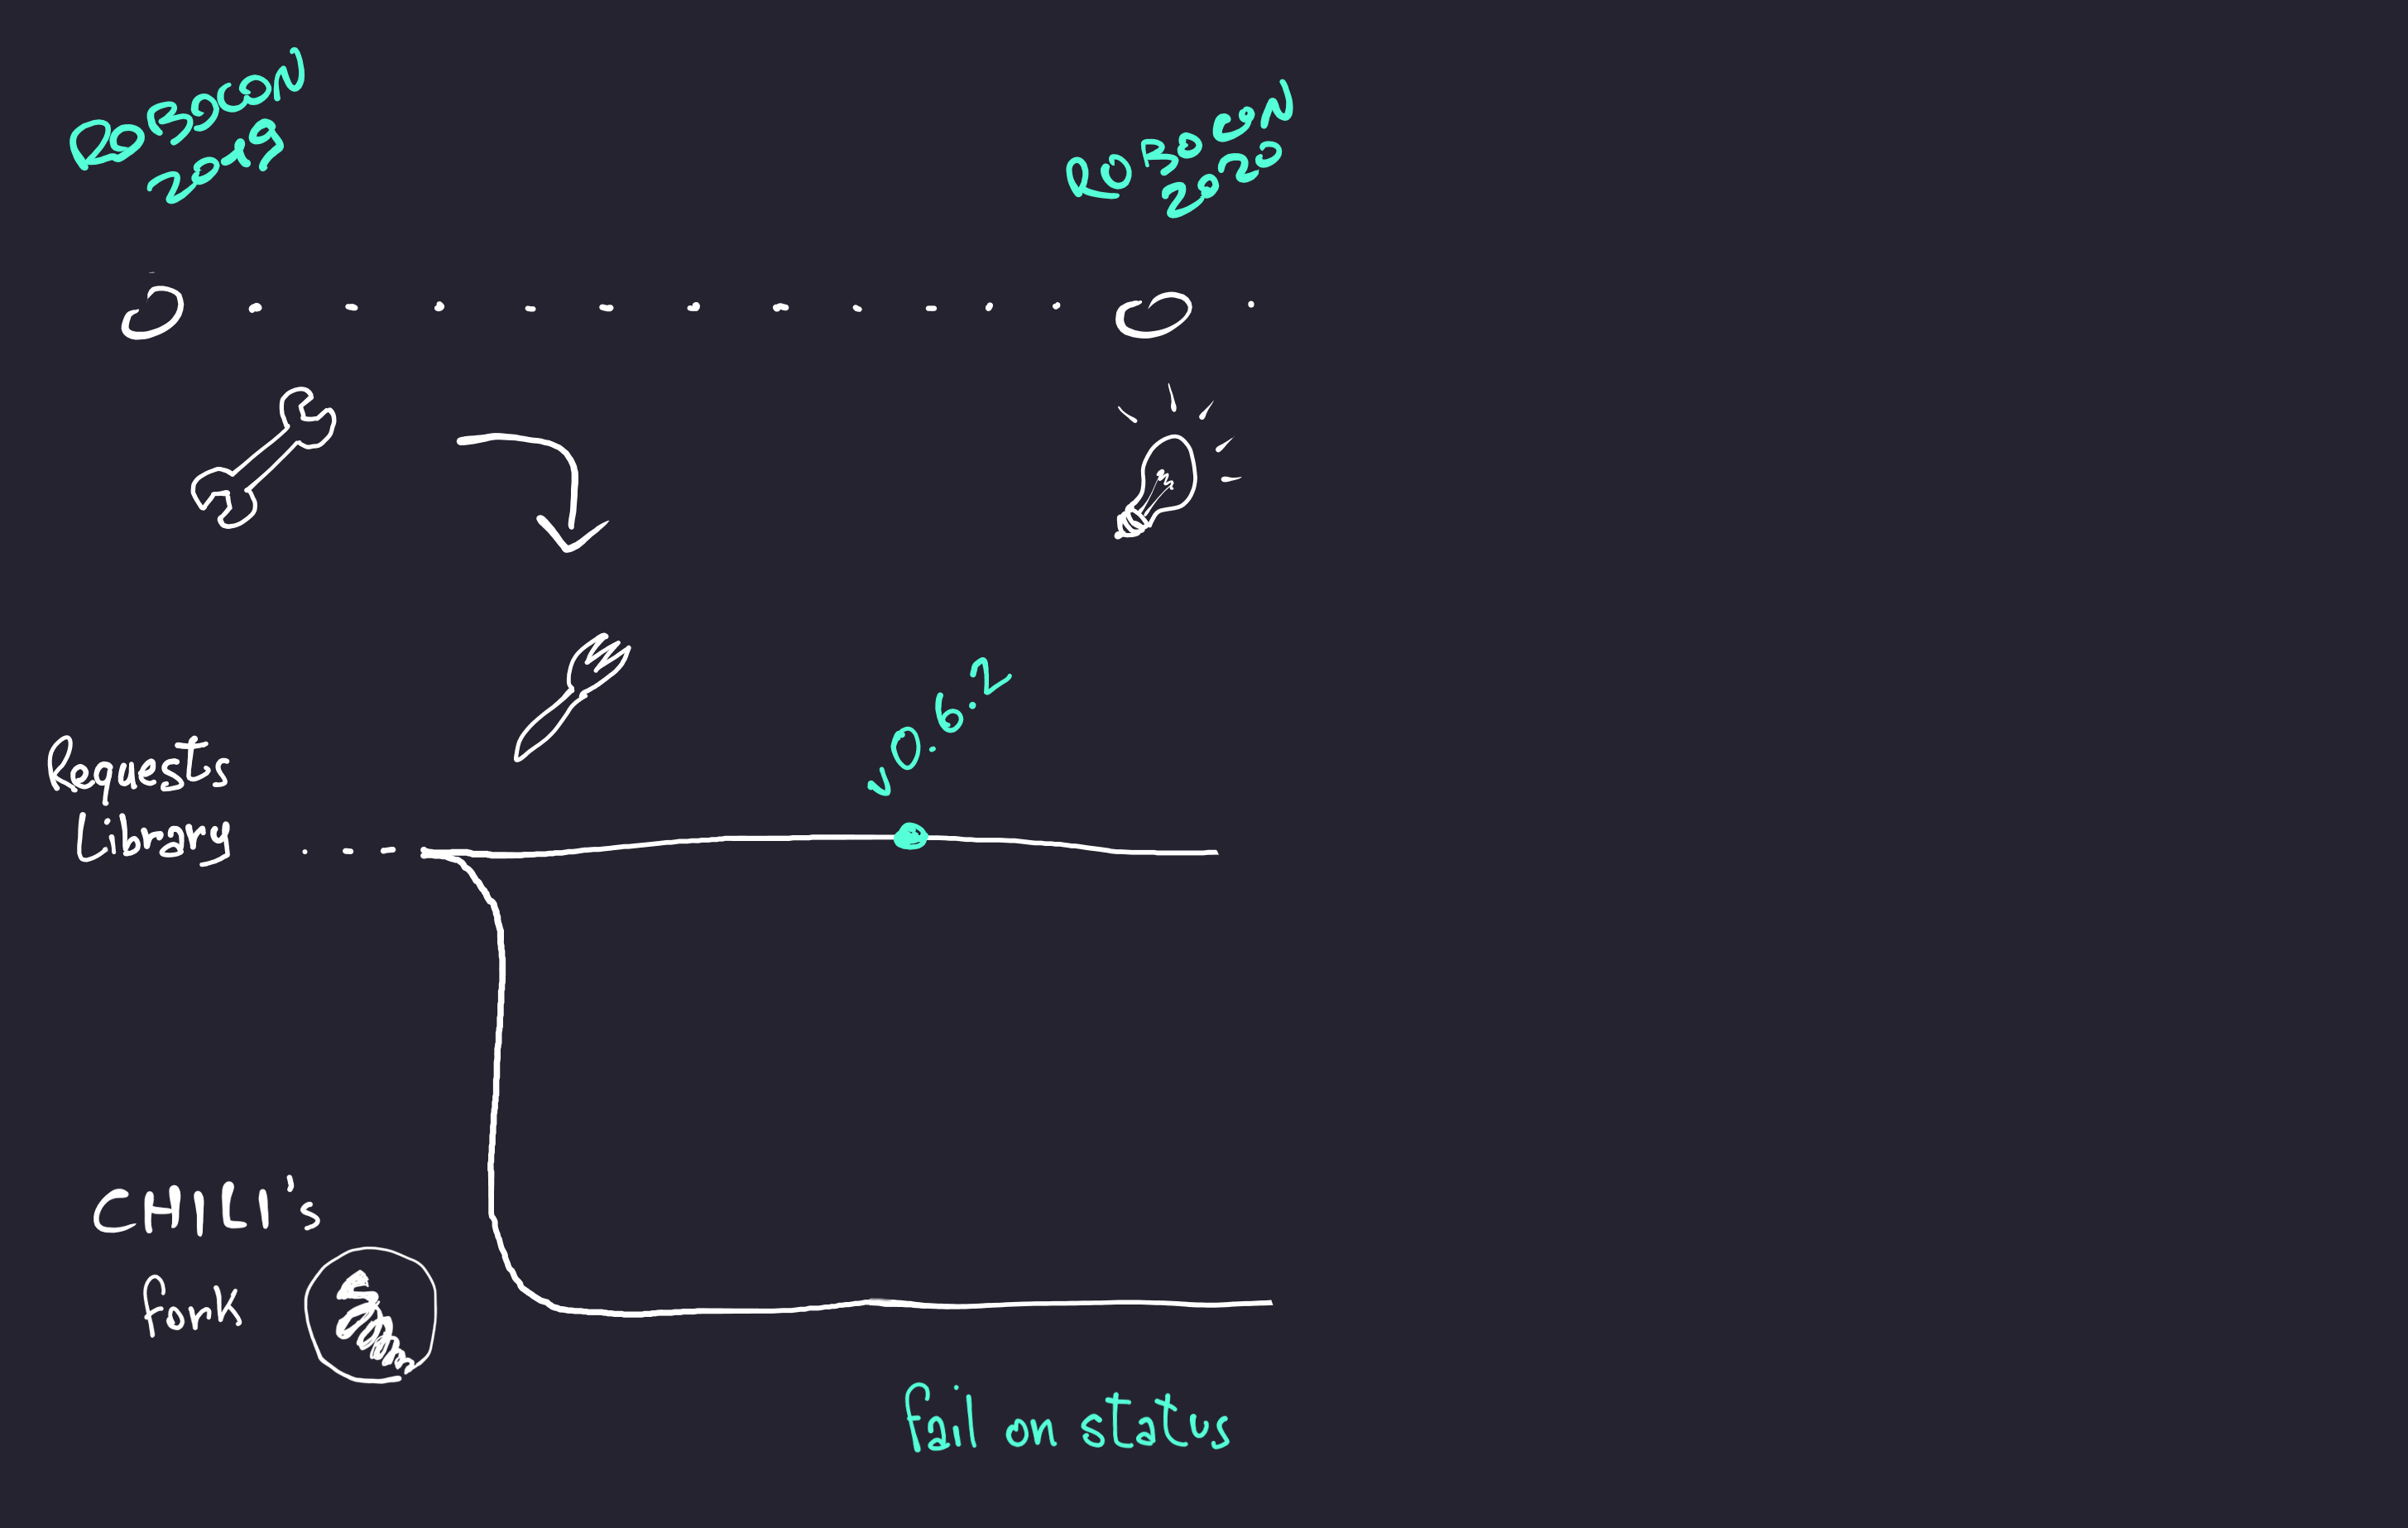 ROBOCON
2019
ROBOCON
2020
v0.6.2
Requests
Library
CHILI's
fork
fail on status